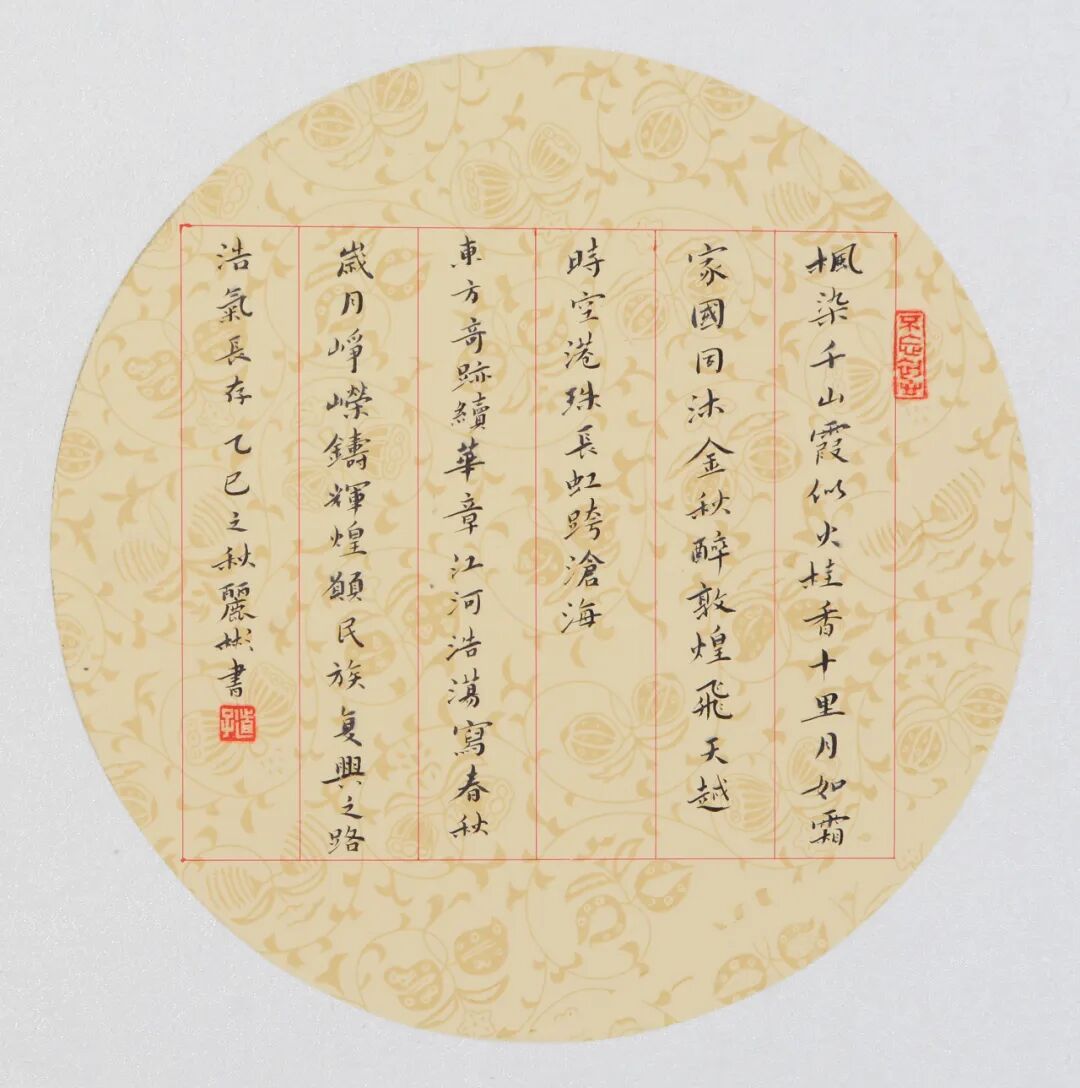 楓染千山霞似火桂香十里月如霜
家國同沐金秋醉敦煌飛天越
時空港珠長虹跨滄海
東方奇跡續華章江河浩蕩寫春秋
歲月崢嶸鑄輝煌願民族复興之路
浩氣長存乙巳之秋麗彬書
不忘初心